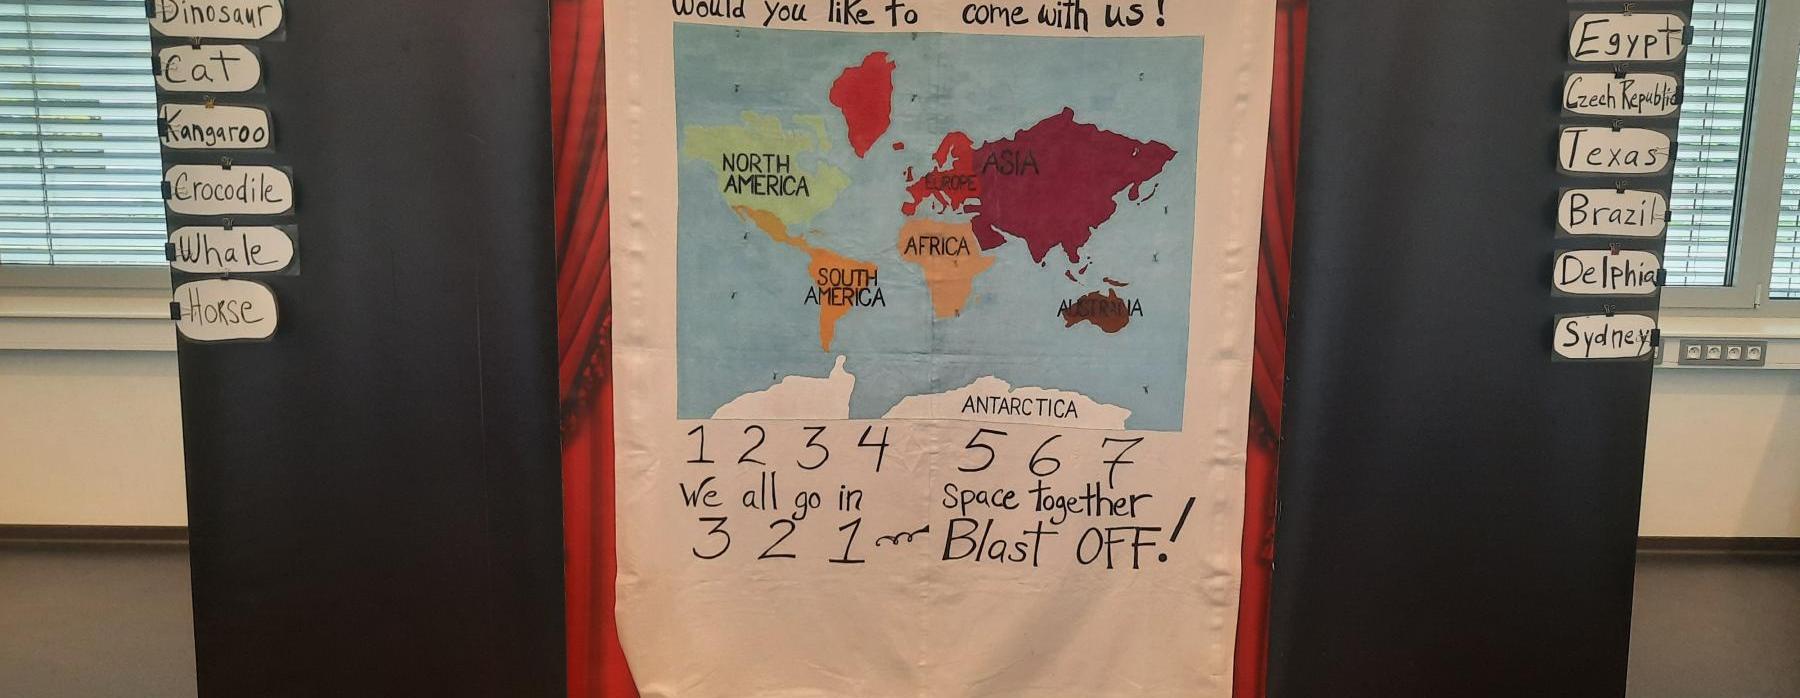 Dinosaur
Cat
Kangaroo
Crocodile
Whale
Horse
Would you like to come with us!
NORTH
AMERICA
ASIA
EUROPE
AFRICA
SOUTH
AMERICA
AUSTRALIA
ANTARCTICA
1 2 3 4 5 6 7
We all go in space together
3 2 1 Blast OFF!
Egypt
Czech Republic
Texas
Brazil
Delphia
Sydney